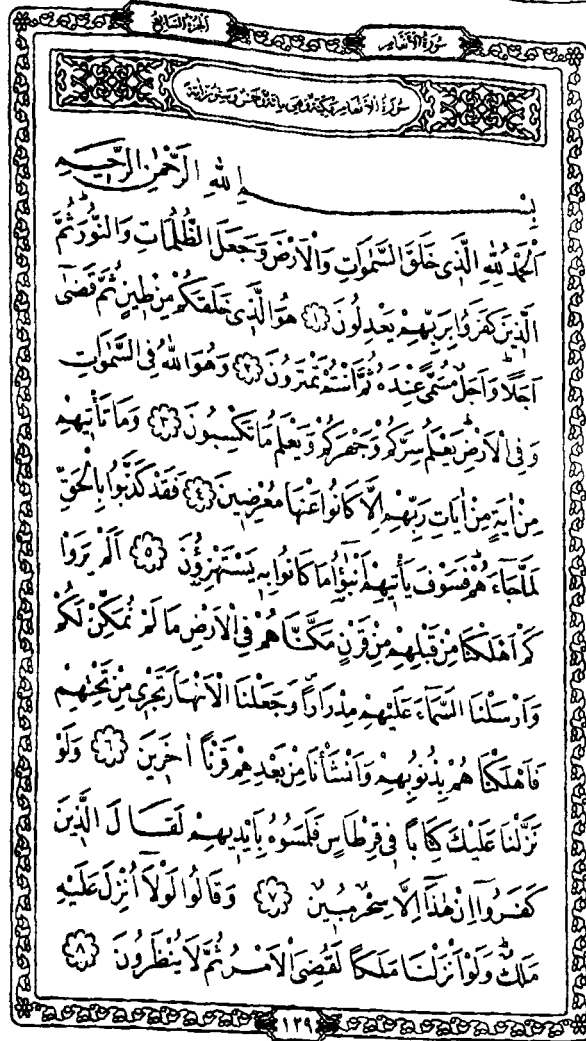 الجزء السابع
سورة الأنعام
سورة الانعام مكية وهى مائة وخمس وستون آية
بِسْمِ اللهِ الرَّحْمٰنِ الرَّحِيمِ
اَلْحَمْدُ لِلّٰهِ الَّذِى خَلَقَ السَّمٰوَاتِ وَالْاَرْضَ وَجَعَلَ الظُّلُمَاتِ وَالنُّورَ ثُمَّ
الَّذِينَ كَفَرُوا بِرَبِّهِمْ يَعْدِلُونَ ﴿١﴾ هُوَ الَّذِى خَلَقَكُمْ مِنْ طِينٍ ثُمَّ قَضٰىٓ
اَجَلًا وَاَجَلٌ مُسَمًّى عِنْدَهُ ثُمَّ اَنْتُمْ تَمْتَرُونَ ﴿٢﴾ وَهُوَ اللهُ فِى السَّمٰوَاتِ
وَفِى الْاَرْضِ يَعْلَمُ سِرَّكُمْ وَجَهْرَكُمْ وَيَعْلَمُ مَا تَكْسِبُونَ ﴿٣﴾ وَمَا تَأْتِيهِمْ
مِنْ اٰيَةٍ مِنْ اٰيَاتِ رَبِّهِمْ اِلَّا كَانُوا عَنْهَا مُعْرِضِينَ ﴿٤﴾ فَقَدْ كَذَّبُوا بِالْحَقِّ
لَمَّا جَآءَهُمْ فَسَوْفَ يَأْتِيهِمْ اَنْبٰٓؤُا مَا كَانُوا بِهِ يَسْتَهْزِؤُنَ ﴿٥﴾ اَلَمْ يَرَوْا
كَمْ اَهْلَكْنَا مِنْ قَبْلِهِمْ مِنْ قَرْنٍ مَكَّنَّاهُمْ فِى الْاَرْضِ مَا لَمْ نُمَكِّنْ لَكُمْ
وَاَرْسَلْنَا السَّمَآءَ عَلَيْهِمْ مِدْرَارًا وَجَعَلْنَا الْاَنْهَارَ تَجْرِى مِنْ تَحْتِهِمْ
فَاَهْلَكْنَاهُمْ بِذُنُوبِهِمْ وَاَنْشَأْنَا مِنْ بَعْدِهِمْ قَرْنًا اٰخَرِينَ ﴿٦﴾ وَلَوْ
نَزَّلْنَا عَلَيْكَ كِتَابًا فِى قِرْطَاسٍ فَلَمَسُوهُ بِاَيْدِيهِمْ لَقَالَ الَّذِينَ
كَفَرُوٓا اِنْ هٰذَآ اِلَّا سِحْرٌ مُبِينٌ ﴿٧﴾ وَقَالُوا لَوْلَآ اُنْزِلَ عَلَيْهِ
مَلَكٌ وَلَوْ اَنْزَلْنَا مَلَكًا لَقُضِىَ الْاَمْرُ ثُمَّ لَا يُنْظَرُونَ ﴿٨﴾
١٢٩